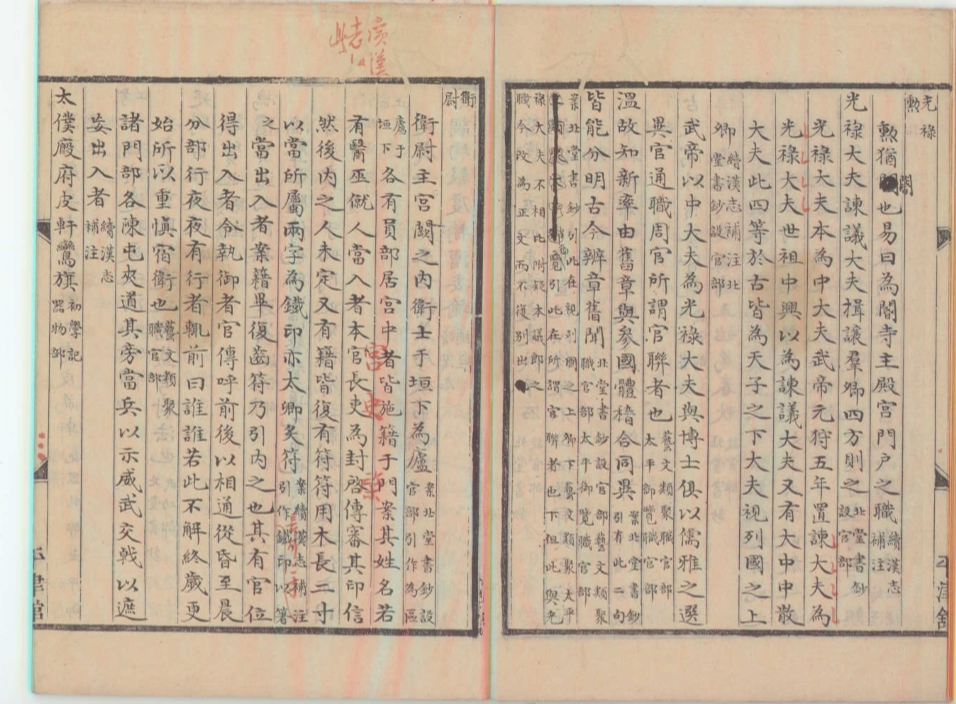 光祿
勲
勲猶閽也易曰為閽寺主殿宮門戶之職續漢志補注
光祿大夫諫議大夫揖讓羣卿四方則之北堂書鈔設官部
光祿大夫本為中大夫武帝元狩五年置諫大夫為
光祿大夫世祖中興以為諫議大夫又有大中中散
大夫此四等於古皆為天子之下大夫視列國之上
卿續漢志補注北堂書鈔設官部
武帝以中大夫為光祿大夫與博士俱以儒雅之選
異官通職周官所謂官聯者也藝文類聚職官部太平御覽職官部
溫故知新率由舊章與參國體稽合同異案北堂書鈔引有此二句
皆能分明古今辨章舊聞北堂書鈔設官部藝文類聚職官部太平御覽職官部
案北堂書鈔引此在視列國之上卿下藝文類聚太平
御覽引此在所謂官聯者也下但此與光
祿大夫不相比附疑本議郎之
職今改為正文而不復別出
衛
尉
衛尉主宮闕之內衛士于垣下為廬案北堂書鈔設官部引作為區
廬于垣下各有員部居宮中者皆施籍于門案其姓名若
有醫巫僦人當入者本官長吏為封啓傳審其印信
然後內之人未定又有籍皆復有符符用木長二寸
以當所屬兩字為鐵印亦太卿炙符案續漢志補注引作鐵印以署
之當出入者案籍畢復齒符乃引內之也其有官位
得出入者令執御者官傳呼前後以相通從昏至晨
分部行夜夜有行者輒前曰誰誰若此不解終歲更
始所以重慎宿衛也藝文類聚職官部
諸門部各陳屯夾道其旁當兵以示威武交戟以遮
妄出入者續漢志補注
太僕廄府皮軒鸞旗初學記器物部
平津館